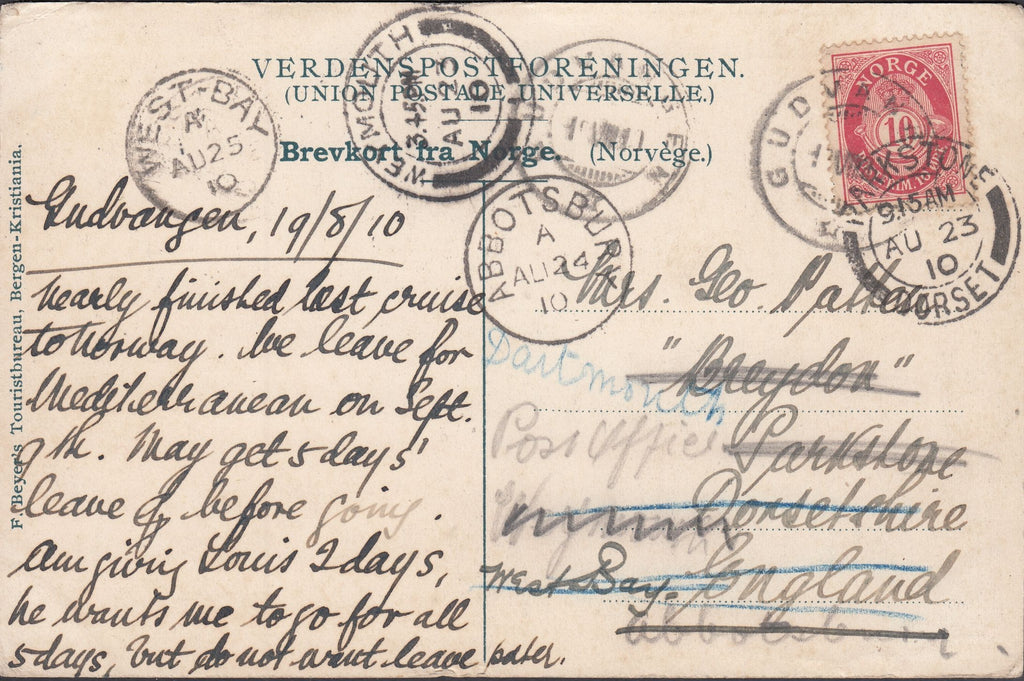 VERDENSPOSTFORENINGEN.
(UNION POSTALE UNIVERSELLE.)
Brevkort fra Norge. (Norvège.)
WEST-BAY
A
AU 25
10
WEYMOUTH
3.45 PM
AU 23
10
ABBOTSBURY
A
AU 24
10
NORGE
10
PARKSTONE
9.15 AM
AU 23
10
DORSET
F. Beyer's Touristbureau, Bergen-Kristiania.
Gudvangen, 19/8/10
nearly finished last cruise
to Norway. We leave for
Mediterranean on Sept.
9th. May get 5 days'
leave before going.
am giving Louis 2 days,
he wants me to go for all
5 days, but do not want leave pater.
Mrs. Geo.
"Breydon"
Parkstone
Dorsetshire
England
Dartmouth
Post Office
West Bay.